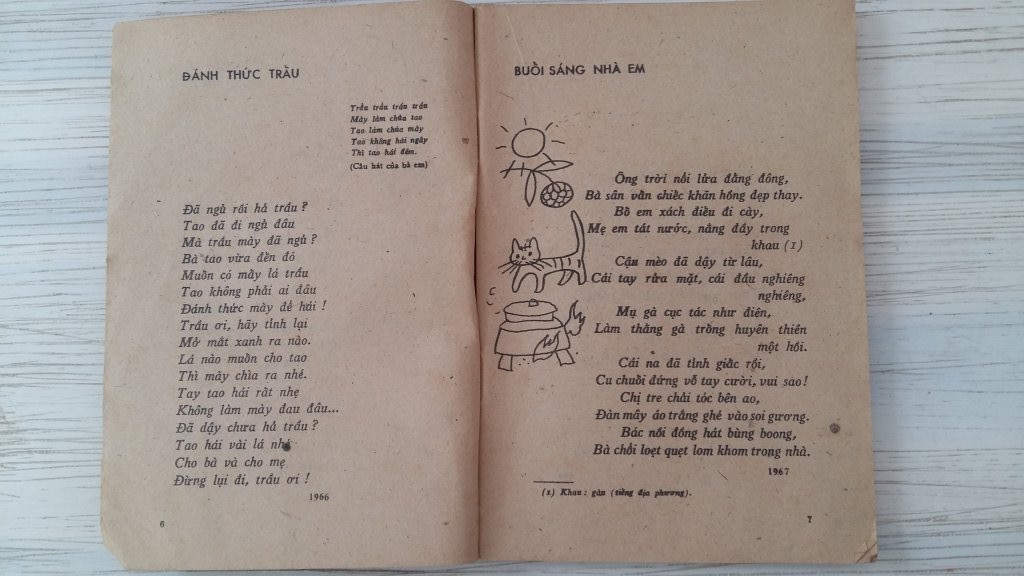 ĐÁNH THỨC TRẦU
Trầu trầu trầu trầu
Mày làm chúa tao
Tao làm chúa mày
Tao không hái ngày
Thì tao hái đêm.
(Câu hát của bà em)
Đã ngủ rồi hả trầu?
Tao đã đi ngủ đâu
Mà trầu mày đã ngủ?
Bà tao vừa đến đó
Muốn có mấy lá trầu
Tao không phải ai đâu
Đánh thức mày để hái!
Trầu ơi, hãy tỉnh lại
Mở mắt xanh ra nào.
Lá nào muốn cho tao
Thì mày chìa ra nhé.
Tay tao hái rất nhẹ
Không làm mày đau đâu...
Đã dậy chưa hả trầu?
Tao hái vài lá nhé
Cho bà và cho mẹ
Đừng lụi đi, trầu ơi!
1966
6
BUỔI SÁNG NHÀ EM
Ông trời nổi lửa đằng đông,
Bà sân vấn chiếc khăn hồng đẹp thay.
Bố em xách điếu đi cày,
Mẹ em tát nước, nắng đầy trong
khau (1)
Cậu mèo đã dậy từ lâu,
Cái tay rửa mặt, cái đầu nghiêng
nghiêng,
Mụ gà cục tác như điên,
Làm thằng gà trống huyên thiên
một hồi.
Cái na đã tỉnh giấc rồi,
Cu chuối đứng vỗ tay cười, vui sao!
Chị tre chải tóc bên ao,
Đàn mây áo trắng ghé vào soi gương.
Bác nồi đồng hát bùng boong,
Bà chổi loẹt quẹt lom khom trong nhà.
1967
(1) Khau: gàu (tiếng địa phương).
7